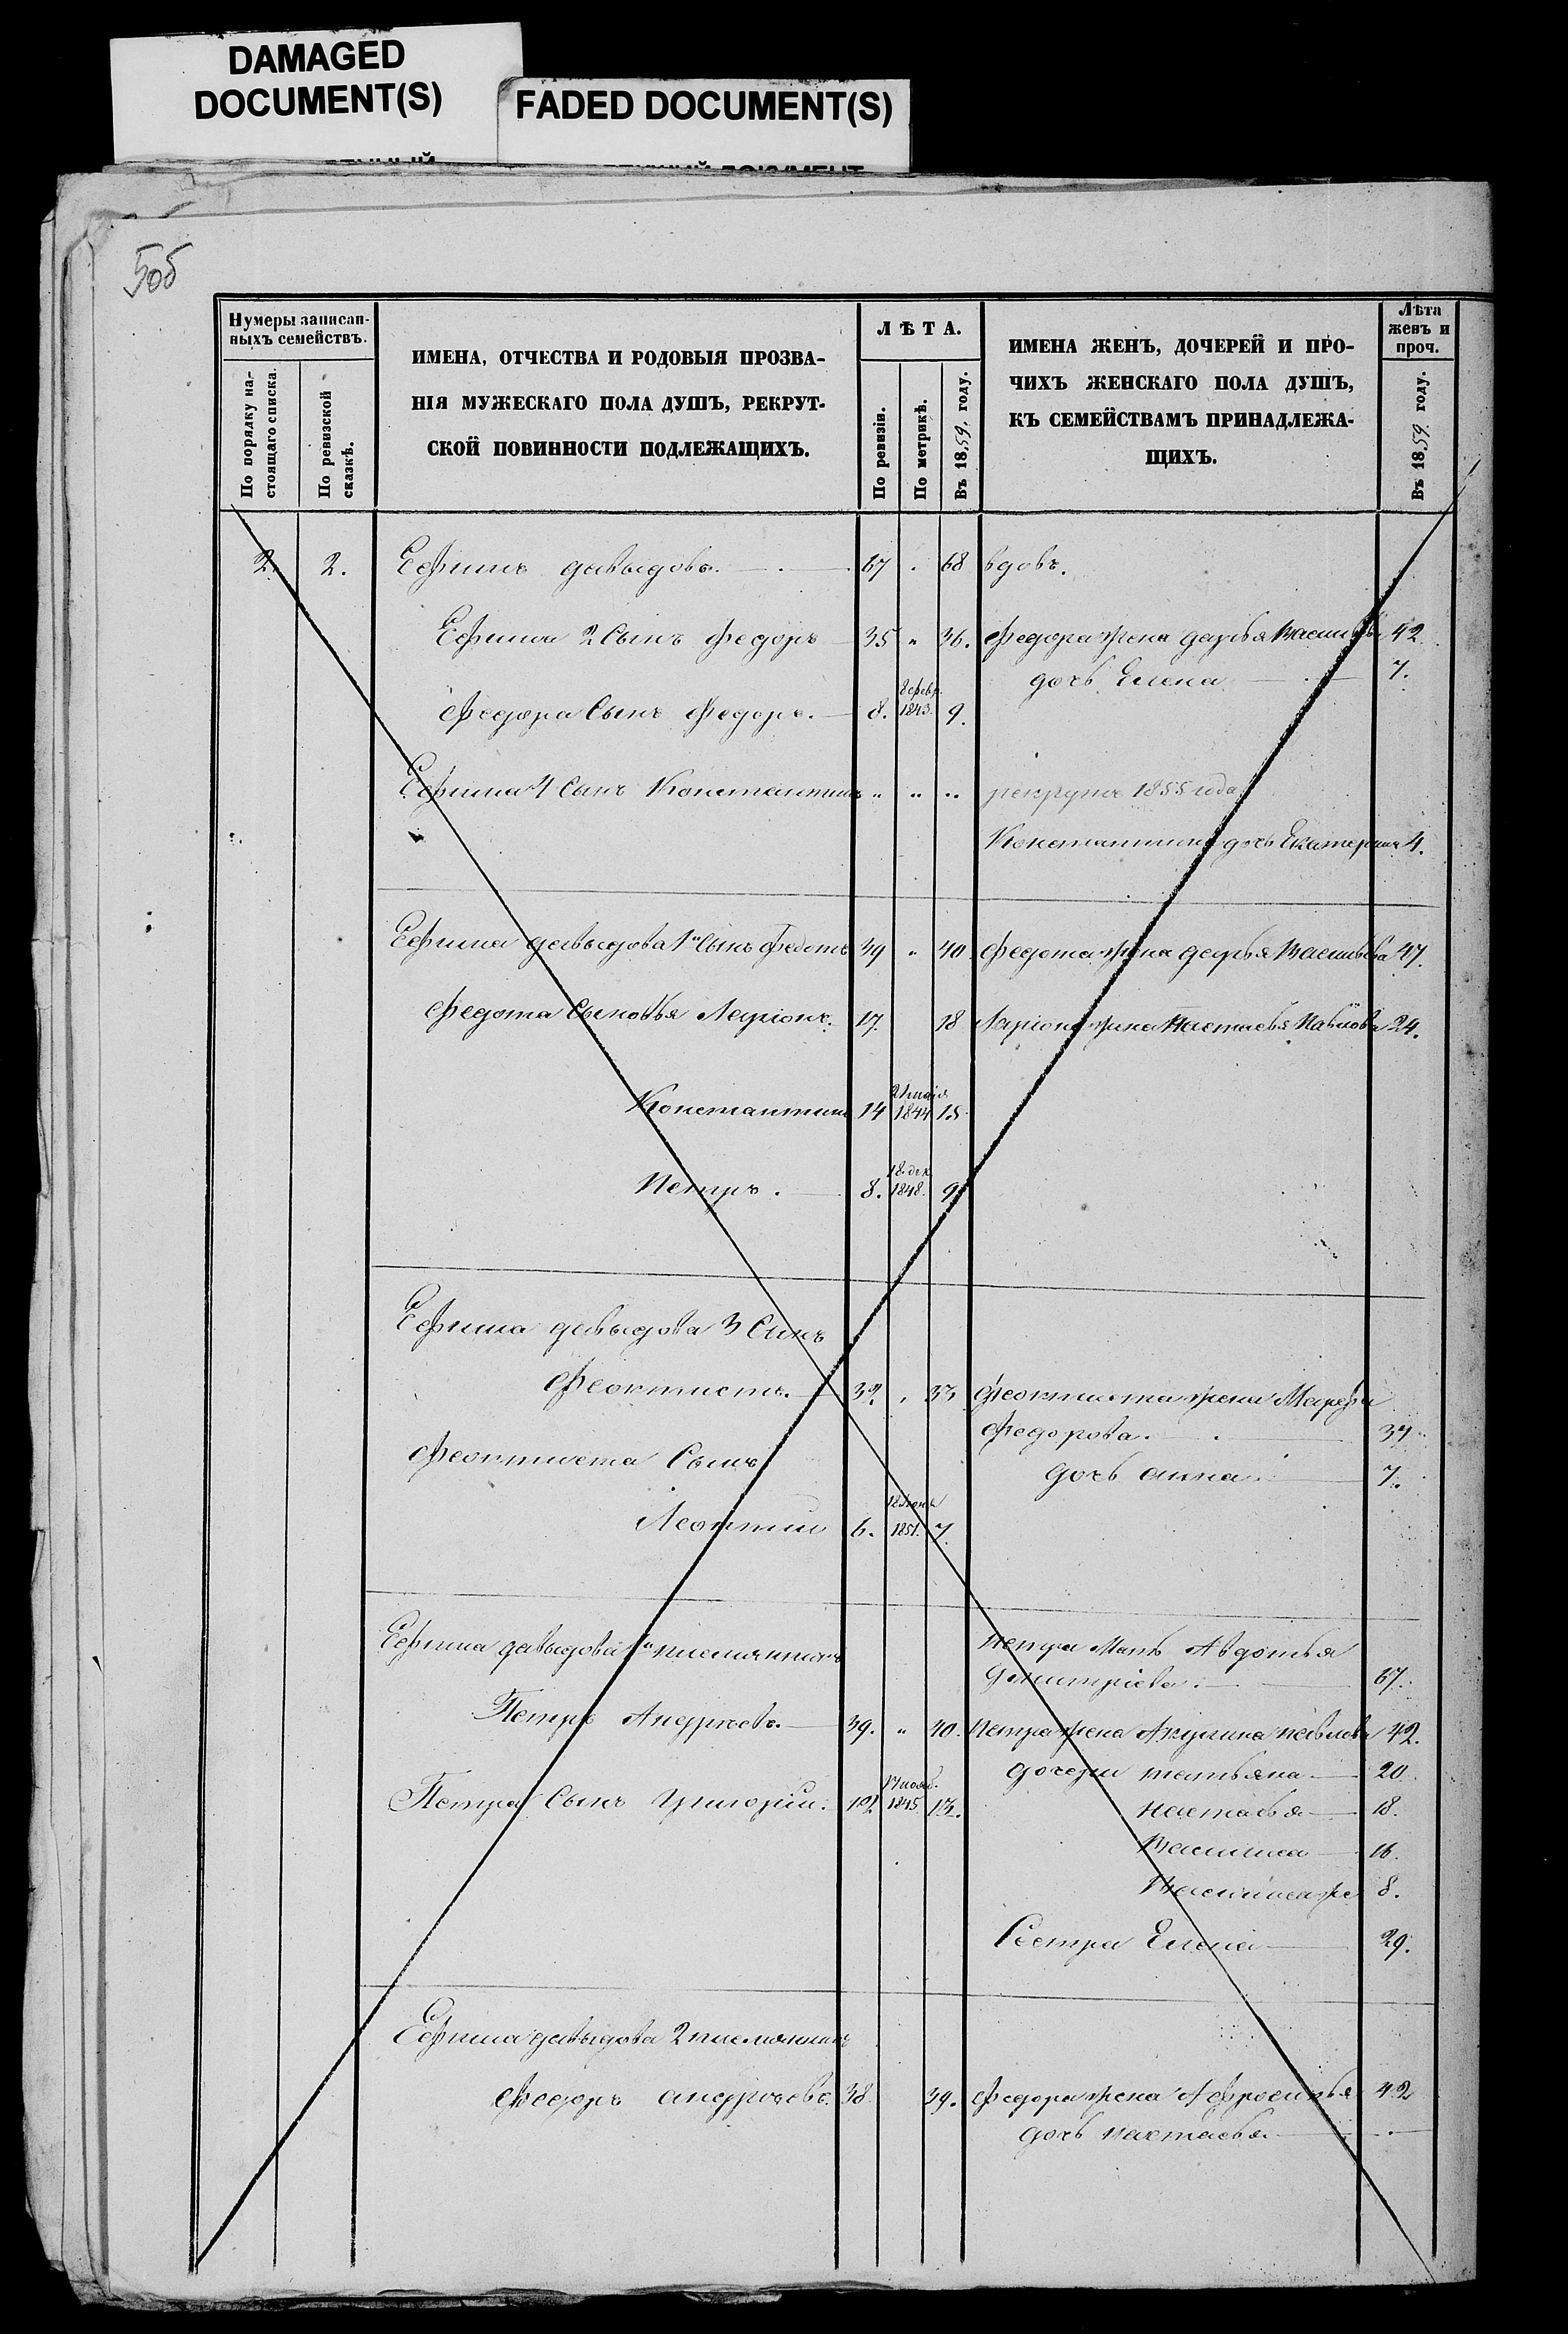 DAMAGED
DOCUMENT(S)
FADED DOCUMENT(S)
505
Нумеры записан-
ныхъ семействъ.
По порядку на-
стоящаго списка.
По ревизской
сказкѣ.
ИМЕНА, ОТЧЕСТВА И РОДОВЫЯ ПРОЗВА-
НІЯ МУЖЕСКАГО ПОЛА ДУШЪ, РЕКРУТ-
СКОЙ ПОВИННОСТИ ПОДЛЕЖАЩИХЪ.
ЛѢТА.
По ревизіи.
По метрикѣ.
Въ 1859. году.
ИМЕНА ЖЕНЪ, ДОЧЕРЕЙ И ПРО-
ЧИХЪ ЖЕНСКАГО ПОЛА ДУШЪ,
КЪ СЕМЕЙСТВАМЪ ПРИНАДЛЕЖА-
ЩИХЪ.
Лѣта
женъ и
проч.
Въ 1859 году.
2. 2. Ефимъ давыдовъ. 67 . 68 вдовъ.
Ефима 2 Сынъ федоръ 35 " 36. федора жена дарья Васильева 42
дочь Елена 7.
федора Сынъ федоръ. 8. 8 февр. 1843. 9.
Ефима 4 Сынъ Константинъ " " " рекрутъ 1855 года
Константина дочь Екатерина 4.
Ефима давыдова 1й Сынъ федотъ 39 " 40 федота жена дарья Васильева 47.
федота Сыновья Ларіонъ. 17. 18 Ларіона жена Настасья Павлова 24.
Константинъ 14 21 маія 1844 15
Петръ. 8. 18 дек. 1848. 9
Ефима давыдова 3 Сынъ
феоктистъ. 32. " 33 феоктиста жена Марфа
федорова. 37
феоктиста Сынъ
дочь анна 7.
Леонтий 6. 18 Іюня 1851. 7.
Ефима давыдова 1й племянникъ
Петра Мать Авдотья
дмитріева. 67.
Петръ Андреевъ. 39. " 40. Петра жена Акулина павлова 42.
дочери татьяна 20
Петра Сынъ Григорій. 12. 17 нояб. 1845. 13.
настасья 18.
Василиса 16.
Василиса же 8.
Сестра Елена 29.
Ефима давыдова 2 племянникъ
федоръ андреевъ. 38 39. федора жена Афросинья 42
дочь настасья